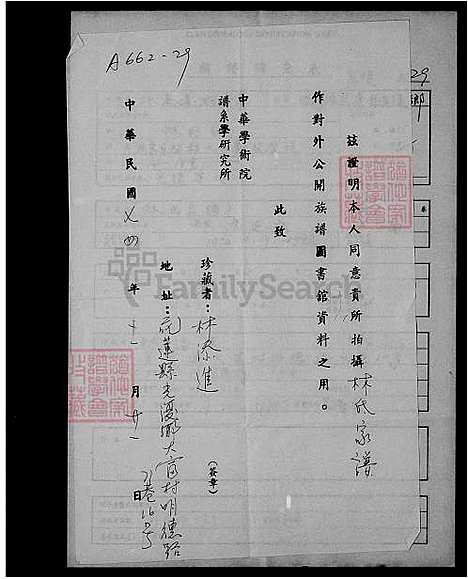 A662-29
茲證明本人同意貴所拍攝林氏家譜
作對外公開族譜圖書館資料之用。
此致
中華學術院
譜系學研究所
珍藏者：林添進
(簽章)
地址：花蓮縣光復鄉大富村明德路
31巷16号
中華民國 年十一月廿一日
FamilySearch
29
鄉